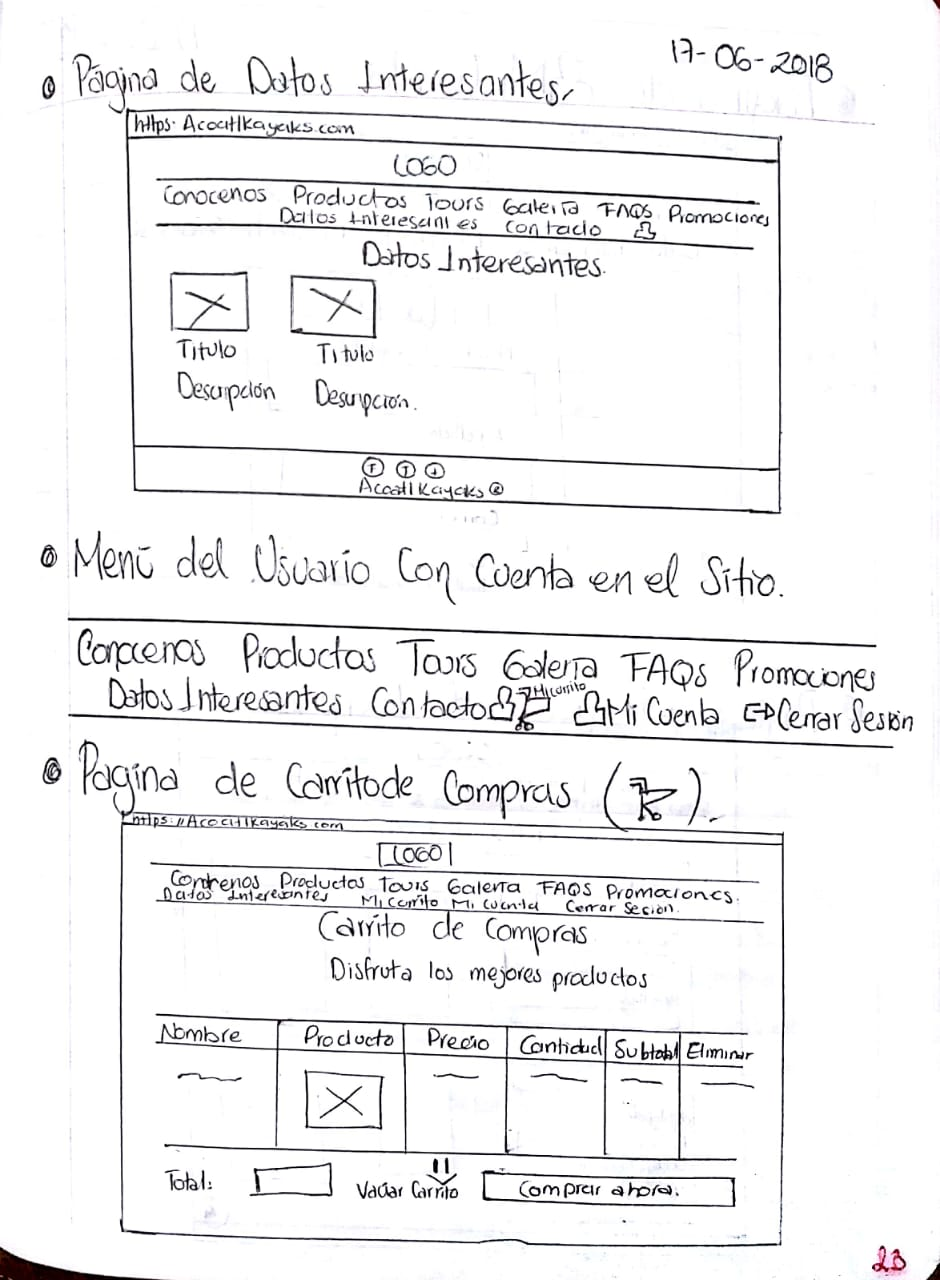 17-06-2018
Página de Datos Interesantes.
https. AcoatlKayaks.com
LOGO
Conocenos Productos Tours Galería FAQS Promociones
Datos Interesantes Contacto
Datos Interesantes.
Titulo Titulo
Descripción Descripción.
F T
Acoatl Kayaks ®
Menú del Usuario Con Cuenta en el Sitio.
Conocenos Productos Tours Galería FAQs Promociones
Datos Interesantes Contacto Mi carrito Mi Cuenta Cerrar Sesión
Pagina de Carrito de Compras ( ).
https://AcoatlKayaks.com
LOGO
Conocenos Productos Tours Galeria FAQS Promociones.
Datos Interesantes Mi carrito Mi cuenta Cerrar Secion.
Carrito de Compras
Disfruta los mejores productos
Nombre Producto Precio Cantidad Subtotal Eliminar
Total: Vaciar Carrito Comprar ahora.
23